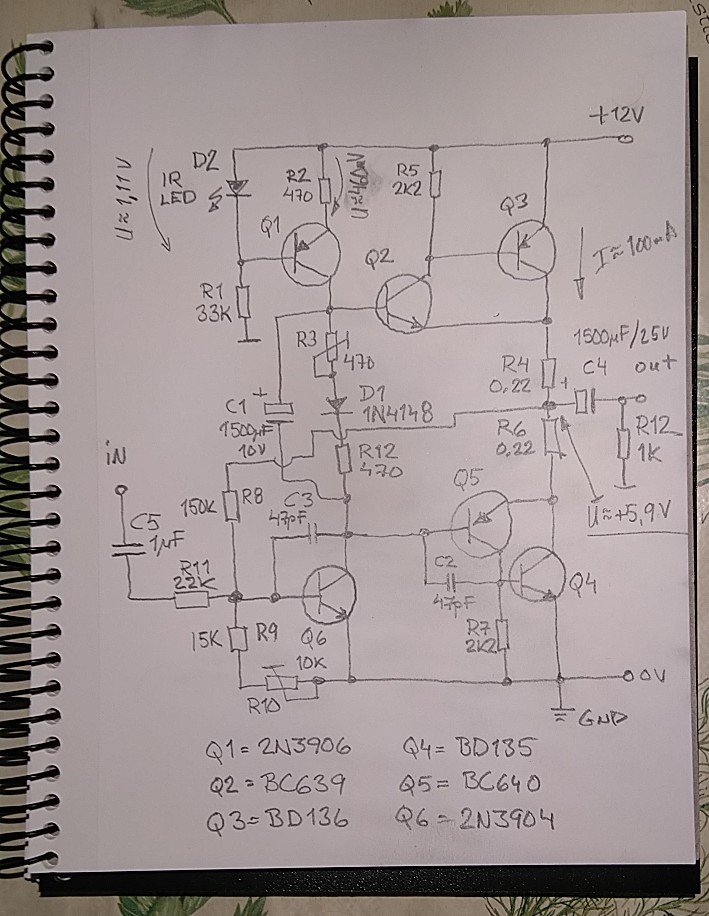 +12V
D2
IR
LED
U≈1,11V
R2
470
R5
2K2
Q3
Q1
Q2
I≈100mA
R1
33K
R3
470
1500µF/25V
C4
out
R4
0,22
+
D1
1N4148
+
C1
1500µF
10V
R12
470
R6
0,22
R12
1K
iN
Q5
U≈+5,9V
150K
R8
C3
47pF
C5
1µF
C2
47pF
R11
22K
Q4
15K
R9
Q6
R7
2K2
10K
R10
0V
GND
Q1=2N3906
Q4=BD135
Q2=BC639
Q5=BC640
Q3=BD136
Q6=2N3904